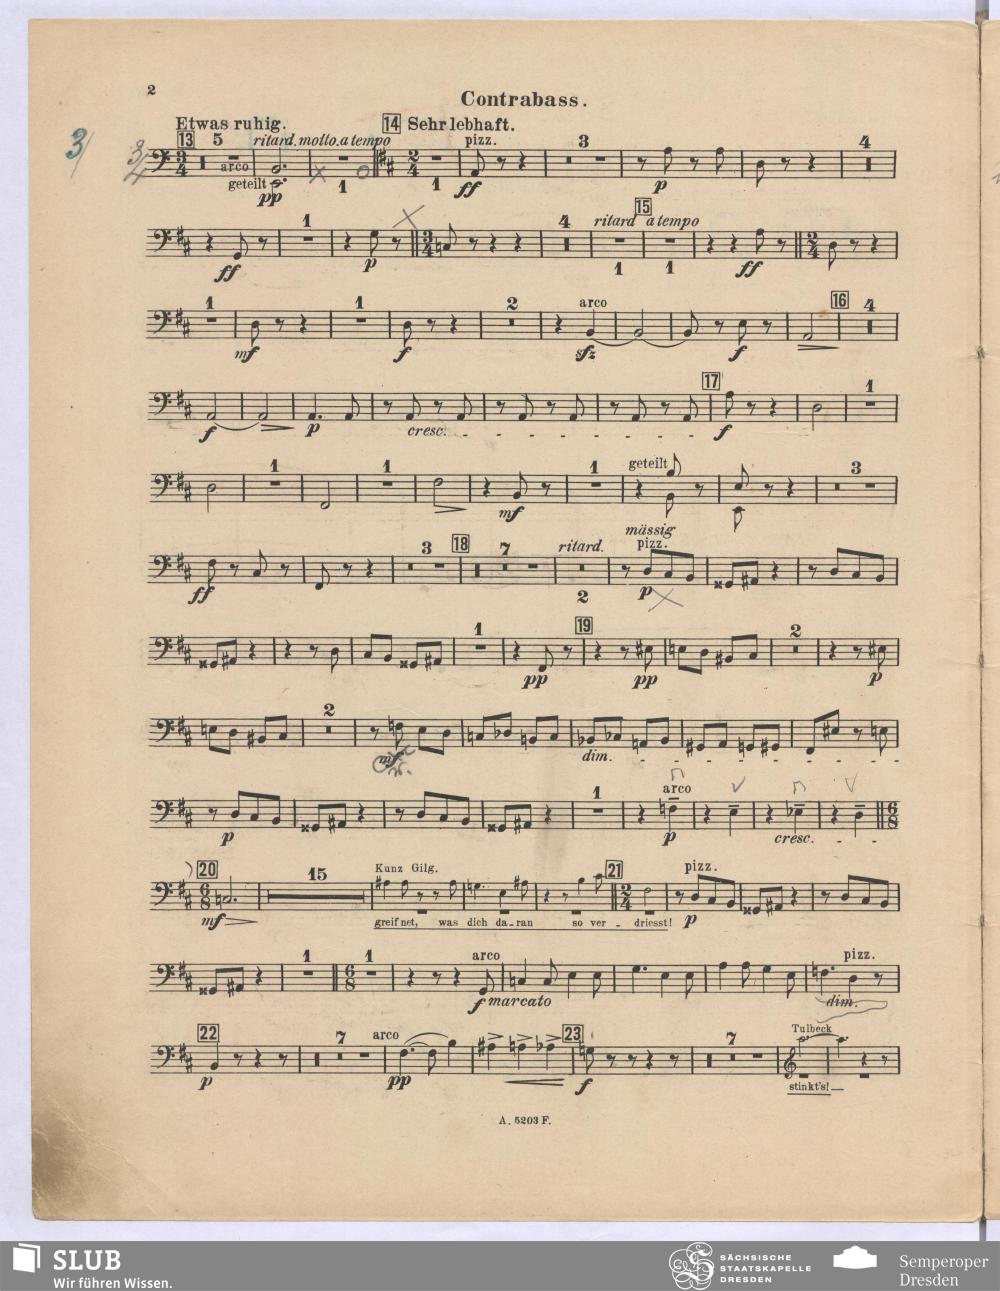 2
Contrabass.
Etwas ruhig. 14 Sehr lebhaft.
13 5 ritard. molto. a tempo pizz. 3 4
3/ 3/4 3 4 arco 2 4
geteilt pp 1 1 ff p
1 4 ritard 15 a tempo
3 4 2 4
ff p 1 1 ff
1 1 2 arco 16 4
mf f sfz f
17 1
f p cresc. f
1 1 1 geteilt 3
mf
mässig
3 18 7 ritard. pizz.
ff 2 p
1 19 2
pp pp p
2
mf dim.
1 arco
6 8
p p cresc.
20 15 Kunz Gilg. 21 pizz.
6 8 2 4
mf greif net, was dich da-ran so ver - driesst! p
1 1 arco pizz.
6 8
f marcato dim.
22 7 arco 23 7 Tulbeck
p pp f stinkt's!
A. 5203 F.
SLUB
Wir führen Wissen.
SÄCHSISCHE
STAATSKAPELLE
DRESDEN
Semperoper
Dresden